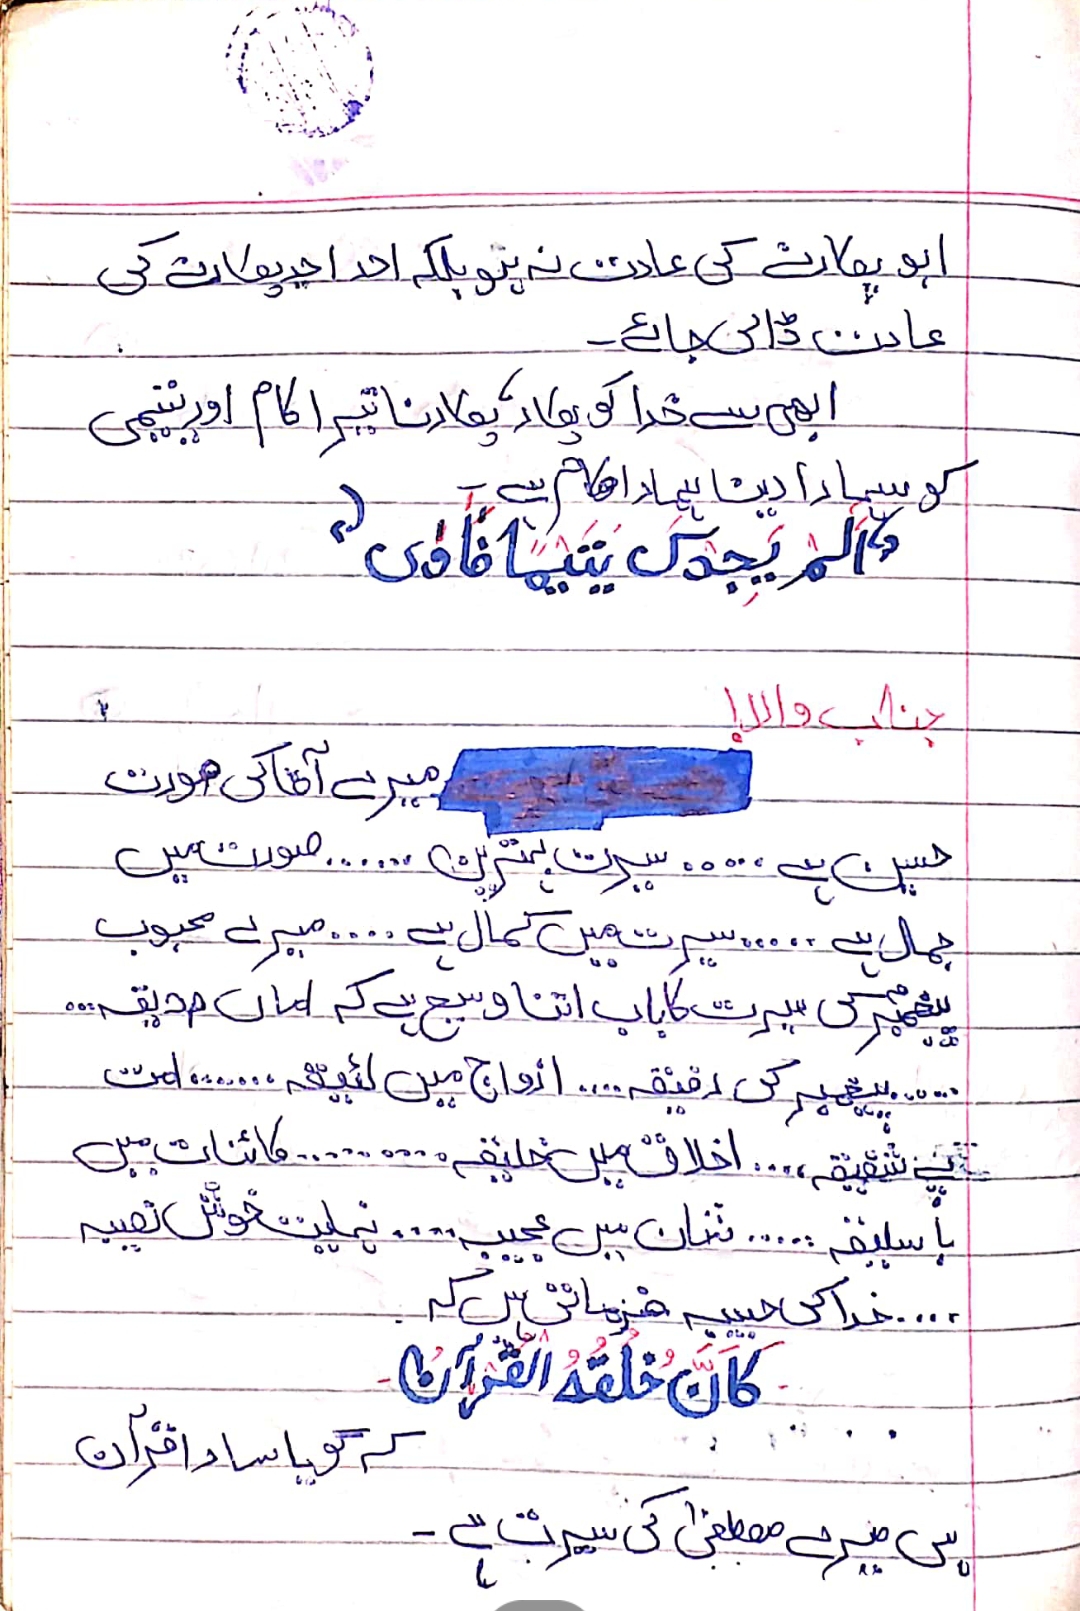 ابو پکارنے کی عادت نہ بنو بلکہ احد احد پکارنے کی
عادت ڈالی جائے۔
ابھی سے خدا کو پکار، پکارنا تیرا کام اور یتیمی
کو سہارا دینا ہمارا کام ہے۔
"اَلَمْ يَجِدْكَ يَتِيْمًا فَاٰوٰى"
جناب والا!
میرے آقا کی صورت
حسین ہے ..... سیرت بہترین ...... صورت میں
جمال ہے ..... سیرت میں کمال ہے .... میرے محبوب
پیغمبر کی سیرت کا باب اتنا وسیع ہے کہ اماں صدیقہ...
..... پیغمبر کی رفیقہ .... ازواج میں لئیقہ ....... امت
پے شفیقہ .... اخلاق میں خلیقہ .......... کائنات میں
با سلیقہ ..... شان میں عجیبہ .... نہایت خوش نصیبہ
.... خدا کی حبیبہ فرماتی ہیں کہ
كَانَ خُلُقُهُ الْقُرْآنُ
کہ گویا سارا قرآن
ہی میرے مصطفیٰ کی سیرت ہے۔